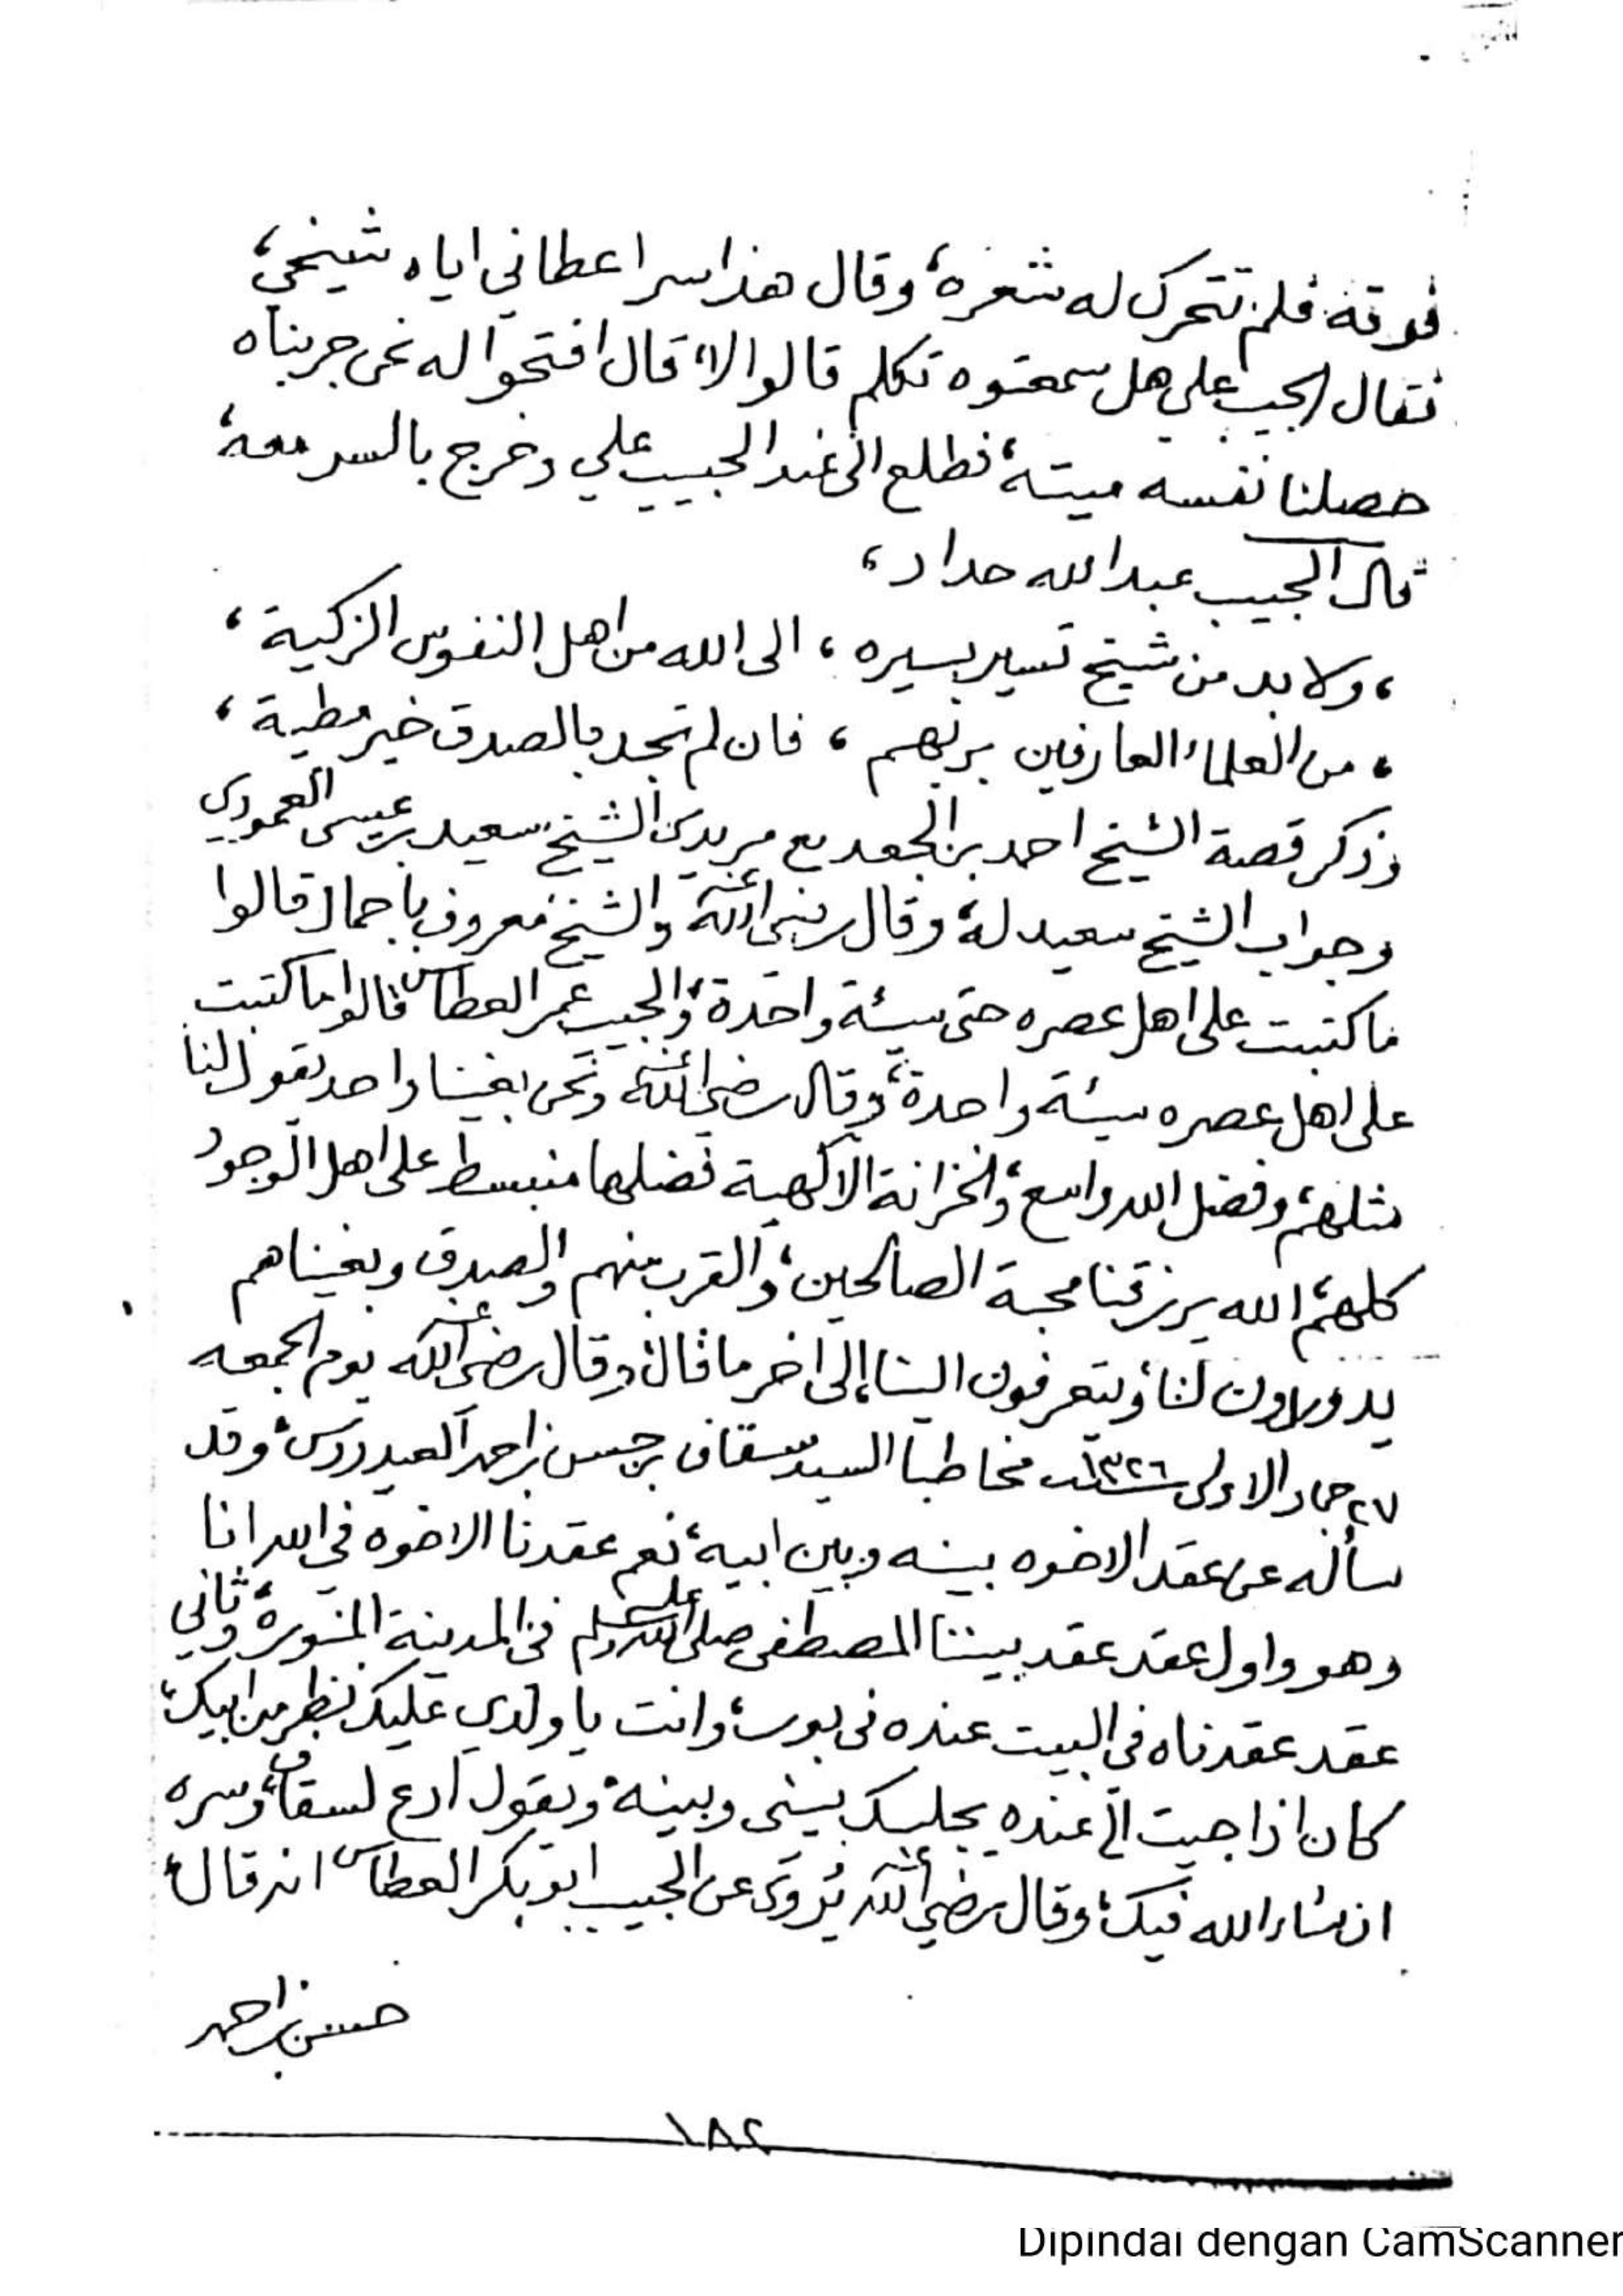 فوقه فلم تتحرك له شعرة، وقال هذا سر اعطاني اياه شيخي،
فقال الحبيب علي هل سمعتوه تكلم قالوا لا، قال افتحوا له نحن جربناه
حصلنا نفسه ميتة، فطلع الى عند الحبيب علي وخرج بالسر معه،
قال الحبيب عبدالله حداد،
، ولا بد من شيخ تسير بسيره ، الى الله من اهل النفوس الزكية ،
، من العلماء العارفين بربهم ، فان لم تجد فالصدق خير مطية ،
وذكر قصة الشيخ احمد بن الجعد مع مريدي الشيخ سعيد بن عيسى العمودي
وجواب الشيخ سعيد له، وقال رضي الله عنه والشيخ معروف باجمال قالوا
ما كتبت على اهل عصره حتى سيئة واحدة، والحبيب عمر العطاس قالوا ما كتبت
على اهل عصره سيئة واحدة، وقال رضي الله عنه ونحن بغينا واحد يقول لنا
مثلهم، وفضل الله واسع، والخزانة الالهية فضلها منبسط على اهل الوجود
كلهم، الله يرزقنا محبة الصالحين، والقرب منهم والصدق وبغيناهم
يدورون لنا، ويتعرفون الينا، إلى اخر ما قال، وقال رضي الله عنه يوم الجمعه
٢٧ جماد الاولى سنة ١٣٢٦ مخاطبا السيد سقاف بن حسن بن احمد العيدروس، وقد
سأله عن عقد الاخوه بينه وبين ابيه، نعم عقدنا الاخوه في الله انا
وهو واول عقد عقد بيننا المصطفى صلى الله عليه وسلم في المدينة المنورة، وثاني
عقد عقدناه في البيت عنده في بور، وانت يا ولدي عليك نظر من ابيك،
كان اذا جيت الى عنده يجلسك بيني وبينه، ويقول ادع لسقاف، وسره
ان شاء الله فيك، وقال رضي الله عنه يُروى عن الحبيب ابو بكر العطاس انه قال،
حسن بن احمد
١٨٤
Dipindai dengan CamScanner